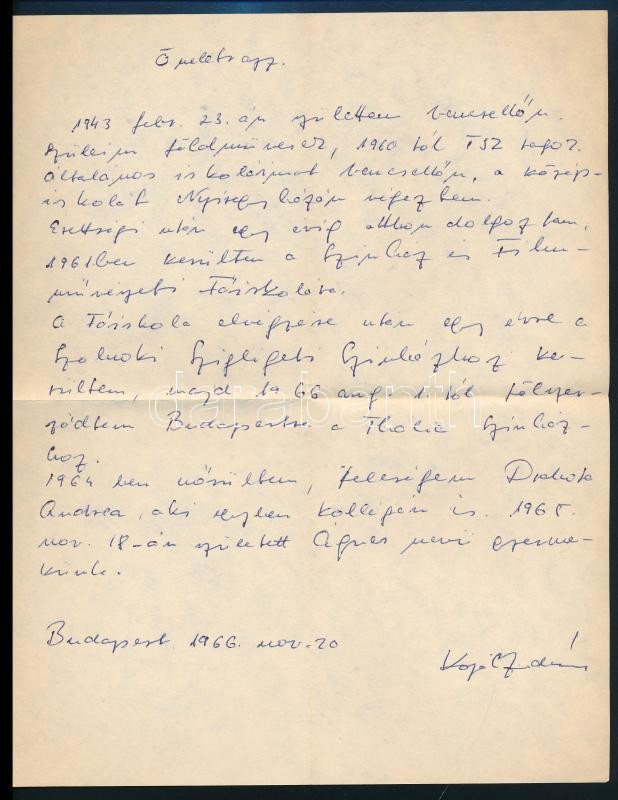 Önéletrajz.
1943 febr. 23.-án születtem Vencsellőn.
Szüleim földművesek, 1960 tól TSZ tagok.
Általános iskoláimat Vencsellőn, a közép-
iskolát Nyíregyházán végeztem.
Érettségi után egy évig otthon dolgoztam,
1961ben kerültem a Színház és Film-
művészeti Főiskolára.
A Főiskola elvégzése után egy évre a
Szolnoki Szigligeti Színházhoz ke-
rültem, majd 1966 aug 1. től
ződtem Budapestre a Thália Színház-
hoz.
1964 ben nősültem, feleségem Drahota
Andrea, aki egyben kollégám is. 1965.
nov. 18-án született Ágnes nevű gyerme-
künk.
Budapest. 1966. nov. 20
Kozák András
darabanth